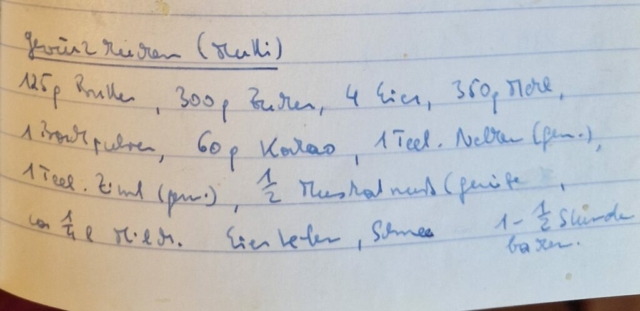 Gewürzkuchen (Mutti)
125g Butter, 300g Zucker, 4 Eier, 350g Mehl,
1 Backpulver, 60g Kakao, 1 Teel. Nelken (gem.),
1 Teel. Zimt (gem.), 1/2 Muskatnuß (gerieben,
ca 1/4 l Milch. Eier , Schnee 1-1/2 Stunde
backen.